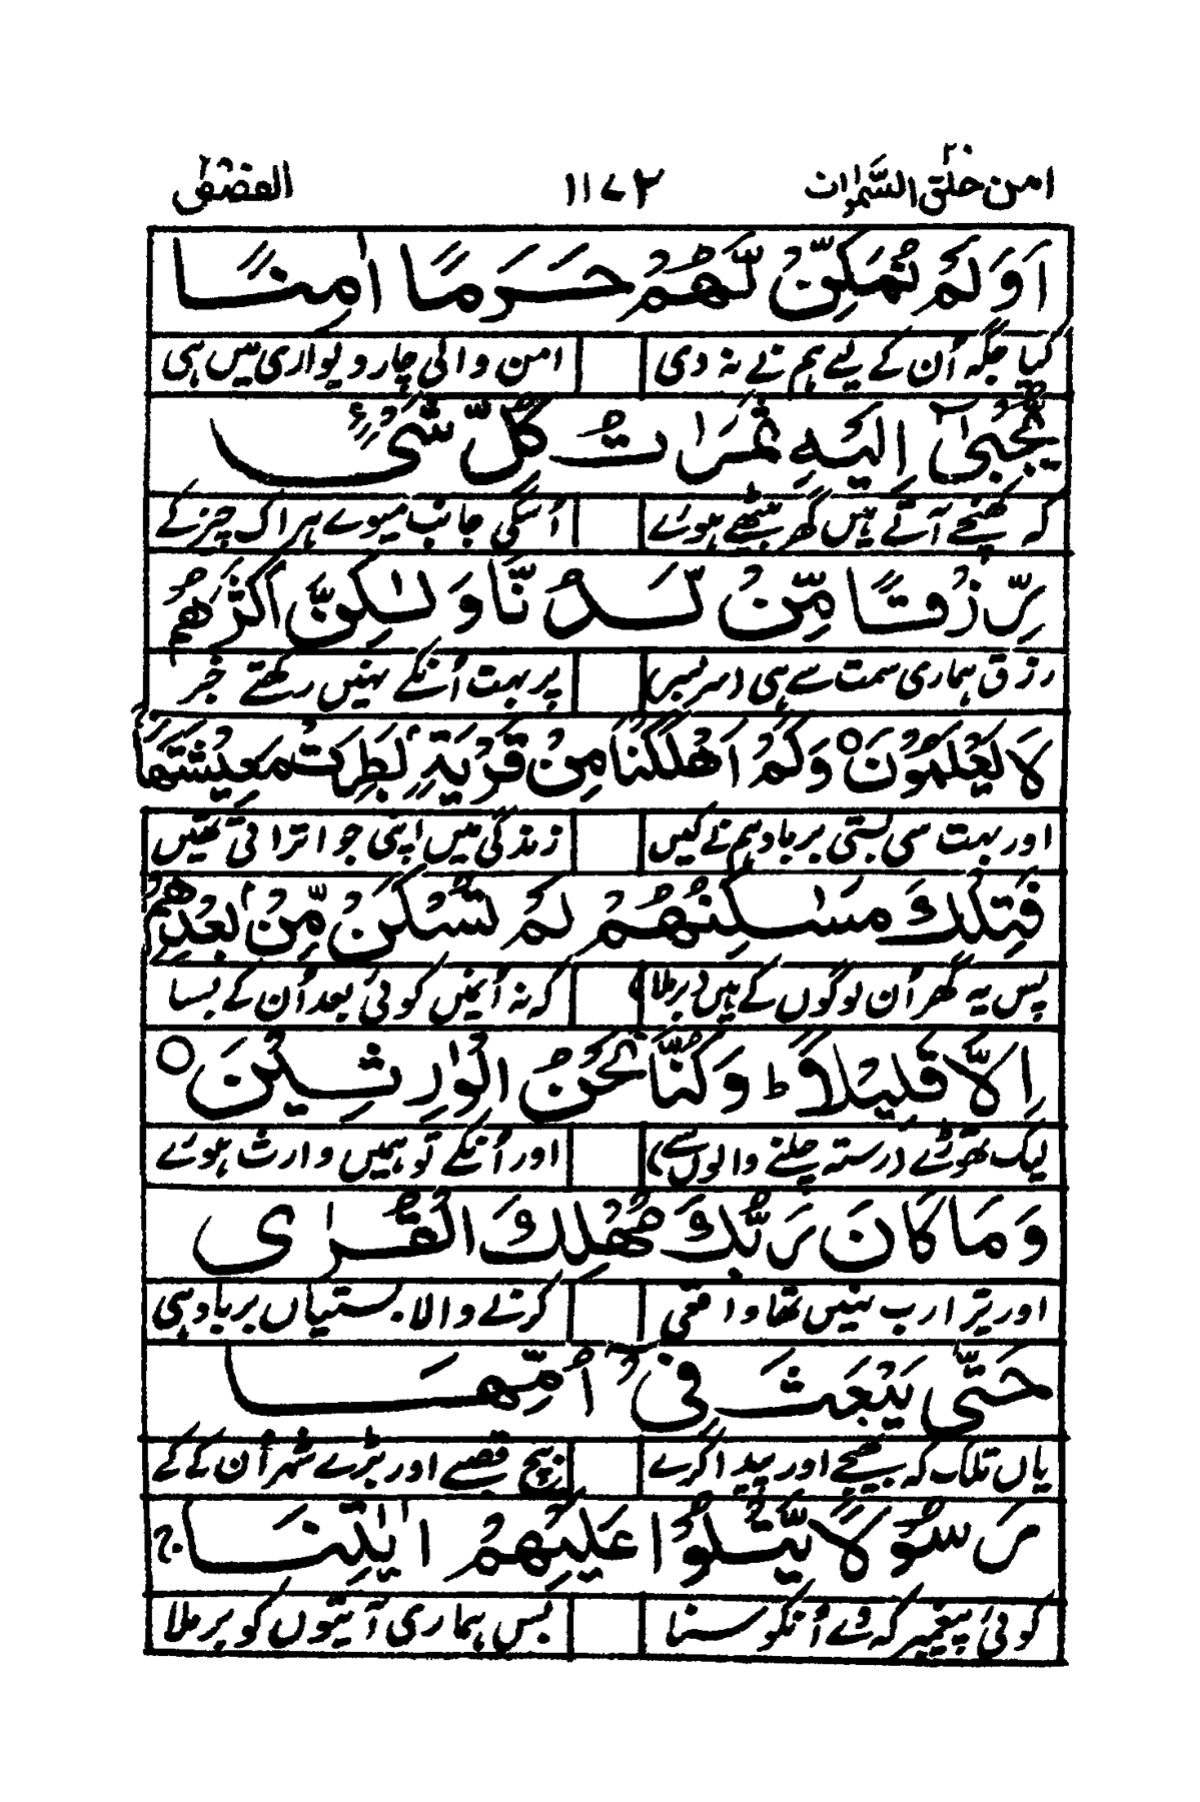 امن خلق السمٰوات ۲۰ ۱۱۷۲ القصص ۲۸
اَوَلَمْ نُمَكِّنْ لَّهُمْ حَرَمًا اٰمِنًا
کیا جگہ اُن کے لیے ہم نے نہ دی امن والی چار دیواری میں ہی
يُّجْبٰىٓ اِلَيْهِ ثَمَرٰتُ كُلِّ شَىْءٍ
کہ کھنچے آتے ہیں گھر بیٹھے ہوئے اُسکی جانب میوے ہر اک چیز کے
رِّزْقًا مِّنْ لَّدُنَّا وَلٰكِنَّ اَكْثَرَهُمْ
رزق ہماری سمت سے ہی (سر بسر) پر بہت اُنکے نہیں رکھتے خبر
لَا يَعْلَمُوْنَ ○ وَكَمْ اَهْلَكْنَا مِنْ قَرْيَةٍۭ بَطِرَتْ مَعِيْشَتَهَا ۚ
اور بہت سی بستی برباد ہم نے کیں زندگی میں اپنی جو اتراتی تھیں
فَتِلْكَ مَسٰكِنُهُمْ لَمْ تُسْكَنْ مِّنْۢ بَعْدِهِمْ
پس یہ گھر اُن لوگوں کے ہیں (برملا) کہ نہ اُنمیں کوئی بعد اُن کے بسا
اِلَّا قَلِيْلًا ؕ وَكُنَّا نَحْنُ الْوٰرِثِيْنَ ○
لیک تھوڑے (رستہ چلنے والوں سے) اور اُنکے تو ہمیں وارث ہوئے
وَمَا كَانَ رَبُّكَ مُهْلِكَ الْقُرٰى
اور ترا رب نہیں تھا واقعی کرنے والا بستیاں برباد ہی
حَتّٰى يَبْعَثَ فِىْٓ اُمِّهَا
یاں تلک کہ بھیجے اور پیدا کرے بیچ قصبے اور بڑے شہر اُن کے کے
رَسُوْلًا يَّتْلُوْا عَلَيْهِمْ اٰيٰتِنَا ۚ
کوئی پیغمبر کہ وے اُنکو سنا بس ہماری آیتوں کو برملا